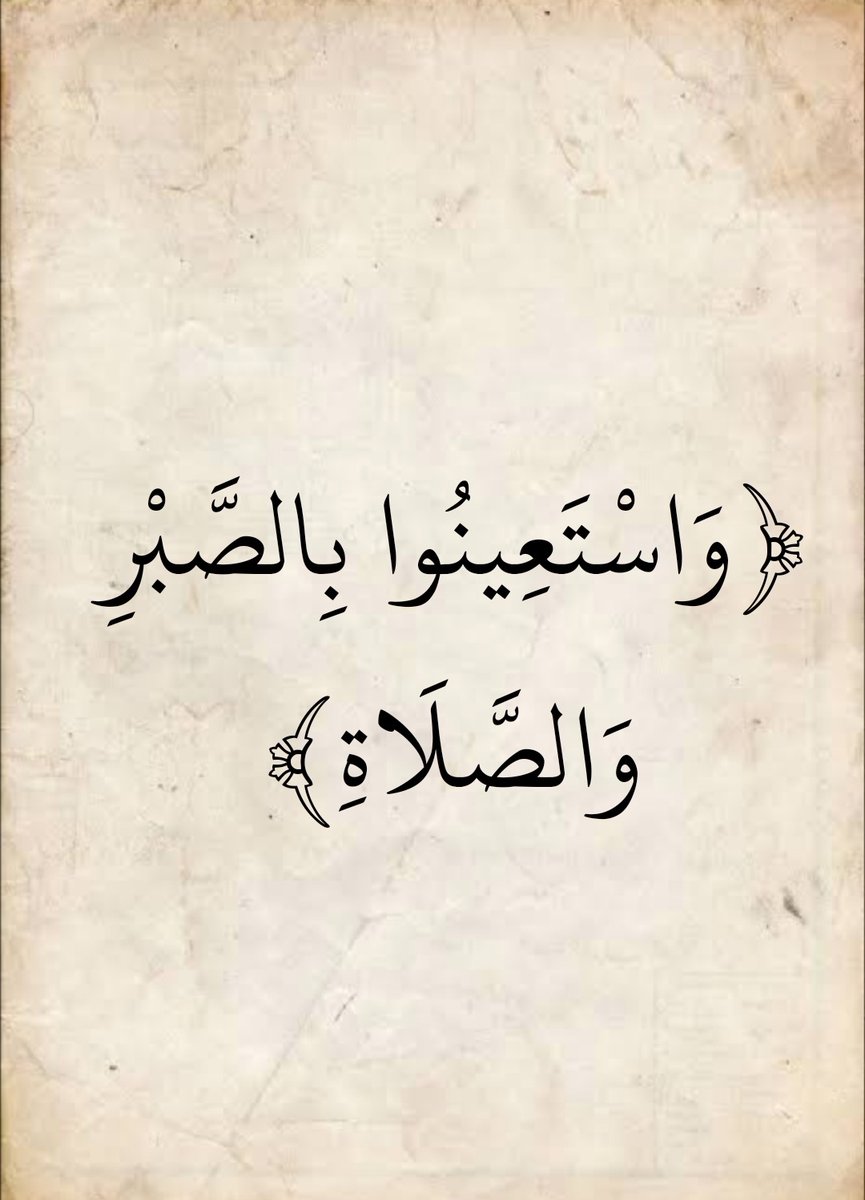 ﴿وَاسْتَعِينُوا بِالصَّبْرِ
وَالصَّلَاةِ﴾